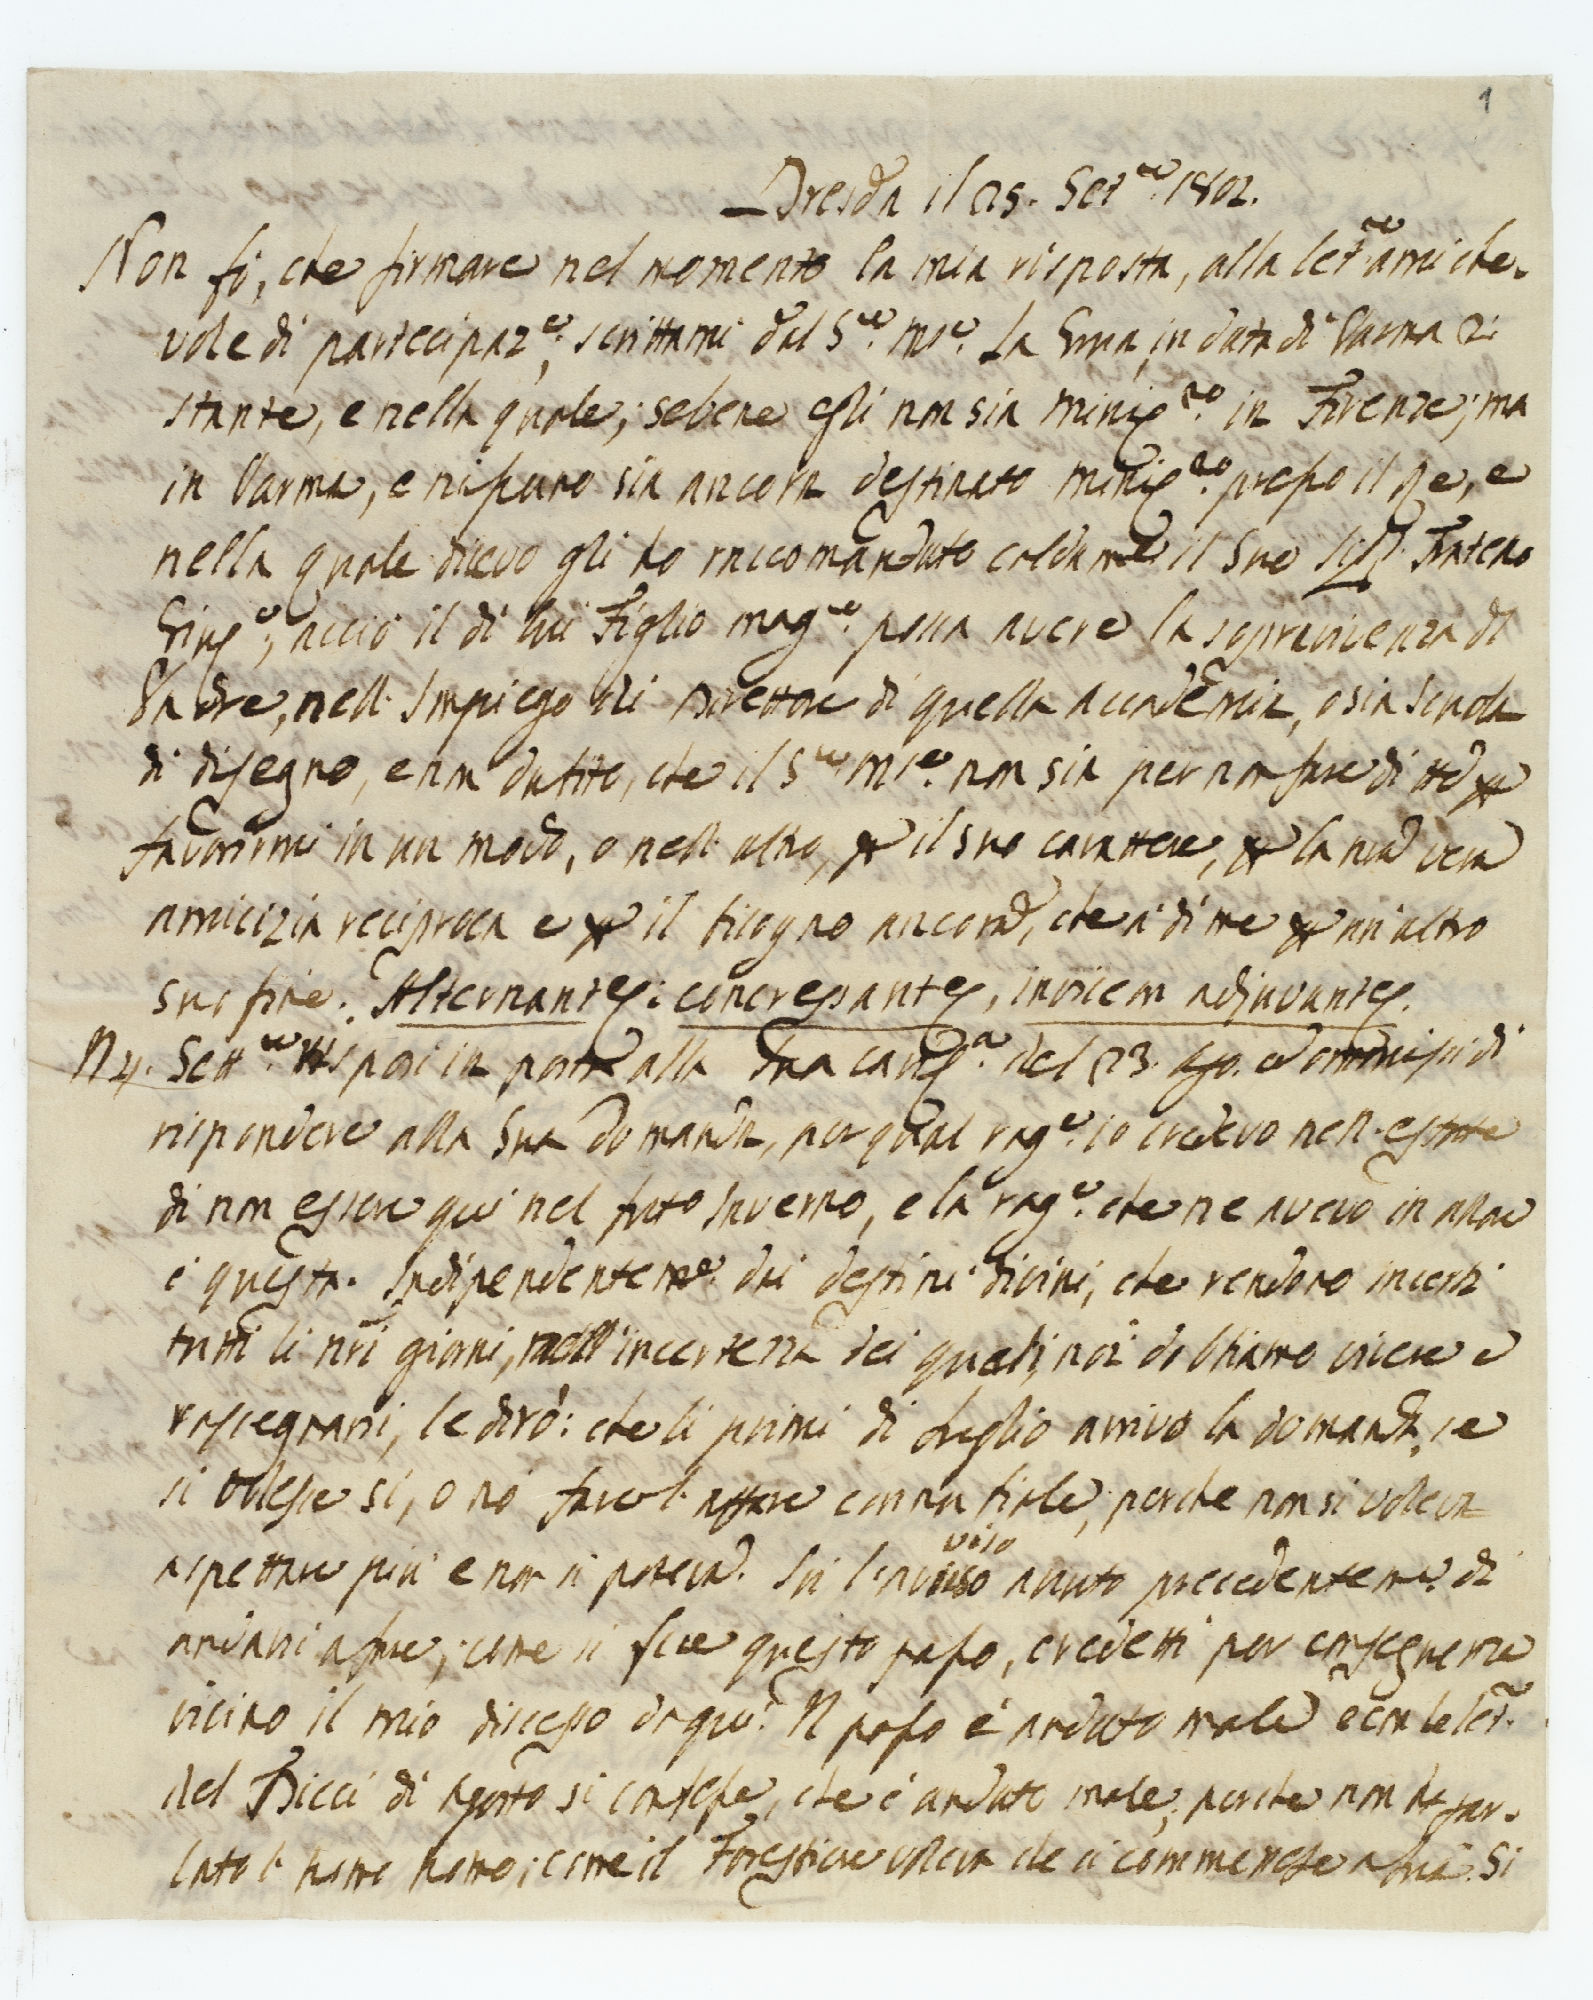 1
Dresda il 25. Set.re 1802.
Non fò, che firmare nel momento la mia risposta, alla let.ra amiche-
vole di partecipaz.e, scrittami dal S.re M.se La Greca, in data di Parma 2i
stante, e nella quale, sebene egli non sia Minis.ro in Firenze, ma
in Parma, e nissuno sia ancora destinato Minis.ro presso il Re, e
nella quale dicevo gli ho raccomandato caldam.e il Suo Sig.r Fratello
Gius.e, acciò il di lui Figlio mag.re possa avere la sopravivenza di
Padre, nell'Impiego di Direttore di quella accademia, o sia Scuola
di disegno, e non dubito, che il S.re M.se non sia per non fare di tto p
favorirmi in un modo, o nell'altro, p il suo carattere, p la nra vera
amicizia reciproca e p il bisogno ancora, che à di me p un'altro
suo fine. Alternantes: concressantes, invicem adjuvantes.
Il 4. Sett.re risposi in parte alla Sua cariss.a del 23. Ago. ed ommisi di
rispondere alla Sua Domanda, per qual rag.e io credevo nell'estate
di non essere qui nel futo Inverno, e la rag.e che ne avevo in allora
è questa. Indipendentem.e dai destini divini, che rendono incerti
tutti li nri giorni, nell'incertezza dei quali, noi dobbiamo vivere e
rassegnarsi, le dirò: che li primi di Luglio arrivò la domanda, se
si volesse si, o nò fare l'affare connubiale, perche non si voleva
aspettare più e non si poteva. Su l'avviso viso avuto precedentem.e di
andarsi a fare, come si fece questo passo, credetti per conseguenza
vicino il mio discesso da qui. Il passo è andato male e con le let.re
del Bicci di Agosto si confessa, che è andato male, perche non ha par-
lato l' homo homo, come il Forestiere voleva che si commettesse a lui. Si